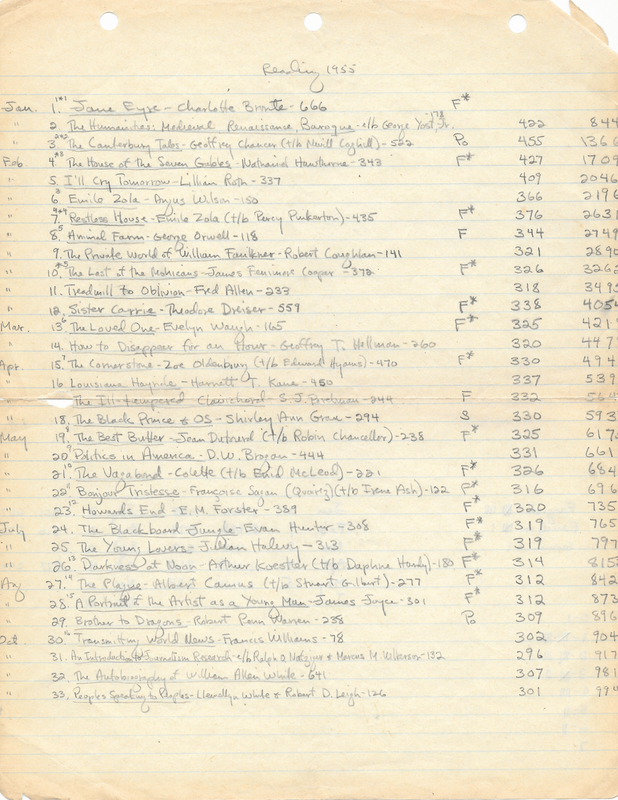 Reading 1955
Jan. 1. Jane Eyre - Charlotte Bronte - 666 F*
" 2. The Humanities: Medieval Renaissance, Baroque - e/b George Yost, Jr. 178 422 844
" 3. The Canterbury Tales - Geoffrey Chaucer (t/b Nevill Coghill) - 522 Po 455 1366
Feb. 4. The House of the Seven Gables - Nathaniel Hawthorne - 343 F* 427 1709
" 5. I'll Cry Tomorrow - Lillian Roth - 337 409 2046
" 6. Emile Zola - Angus Wilson - 150 366 2196
" 7. Restless House - Emile Zola (t/b Percy Pinkerton) - 435 F* 376 2631
" 8. Animal Farm - George Orwell - 118 F 344 2749
" 9. The Private World of William Faulkner - Robert Coughlan - 141 321 2890
" 10. The Last of the Mohicans - James Fenimore Cooper - 372 F* 326 3262
" 11. Treadmill to Oblivion - Fred Allen - 233 318 3495
" 12. Sister Carrie - Theodore Dreiser - 559 F* 338 4054
Mar. 13. The Loved One - Evelyn Waugh - 165 F* 325 421
" 14. How to Disappear for an Hour - Geoffrey T. Hellman - 260 320 447
Apr. 15. The Cornerstone - Zoe Oldenbourg (t/b Edward Hyams) - 470 F* 330 494
" 16. Louisiana Hayride - Harnett T. Kane - 450 337 539
The Ill-Tempered Clavichord - S.J. Perelman - 244 F 332 564
" 18. The Black Prince & OS - Shirley Ann Grau - 294 S 330 593
May 19. The Best Butter - Jean Dutourd (t/b Robin Chancellor) - 238 F* 325 617
" 20. Politics in America - D.W. Brogan - 444 331 661
" 21. The Vagabond - Colette (t/b Enid McLeod) - 221 F* 326 684
" 22. Bonjour Tristesse - Françoise Sagan (Quoirez) (t/b Irene Ash) - 122 F* 316 696
" 23. Howards End - E.M. Forster - 389 F* 320 735
July 24. The Blackboard Jungle - Evan Hunter - 308 F* 319 765
" 25. The Young Lovers - Julian Halevy - 313 F* 319 797
" 26. Darkness at Noon - Arthur Koestler (t/b Daphne Hardy) - 180 F* 314 815
Aug 27. The Plague - Albert Camus (t/b Stuart Gilbert) - 277 F* 312 842
" 28. A Portrait of the Artist as a Young Man - James Joyce - 301 F* 312 873
" 29. Brother to Dragons - Robert Penn Warren - 238 Po 309 896
Oct 30. Transmitting World News - Francis Williams - 78 302 904
" 31. An Introduction to Journalism Research - e/b Ralph O. Nafziger & Marcus M. Wilkerson - 132 296 917
" 32. The Autobiography of William Allen White - 641 307 981
" 33. Peoples Speaking to Peoples - Llewellyn White & Robert D. Leigh - 126 301 994